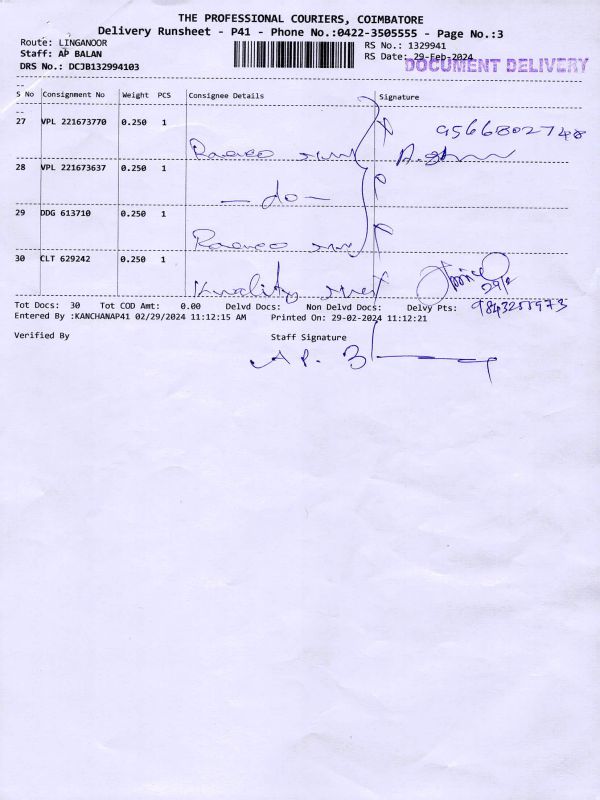 THE PROFESSIONAL COURIERS, COIMBATORE
Delivery Runsheet - P41 - Phone No.:0422-3505555 - Page No.:3
Route: LINGANOOR RS No.: 1329941
Staff: AP BALAN RS Date: 29-Feb-2024
DRS No.: DCJB132994103 DOCUMENT DELIVERY
S No Consignment No Weight PCS Consignee Details Signature
27 VPL 221673770 0.250 1
28 VPL 221673637 0.250 1
- do -
29 DDG 613710 0.250 1
30 CLT 629242 0.250 1
Kwality
29/2
Tot Docs: 30 Tot COD Amt: 0.00 Delvd Docs: Non Delvd Docs: Delvy Pts:
Entered By :KANCHANAP41 02/29/2024 11:12:15 AM Printed On: 29-02-2024 11:12:21
Verified By Staff Signature
AP. B